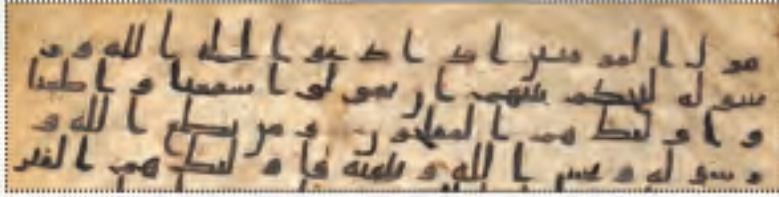 قول المومنين اذا دعوا الى الله و ر
سوله ليحكم بينهم ان يقولوا سمعنا و اطعنا
و اولئك هم المفلحون و من يطع الله و
رسوله و يخش الله و يتقه فاولئك هم الفئز